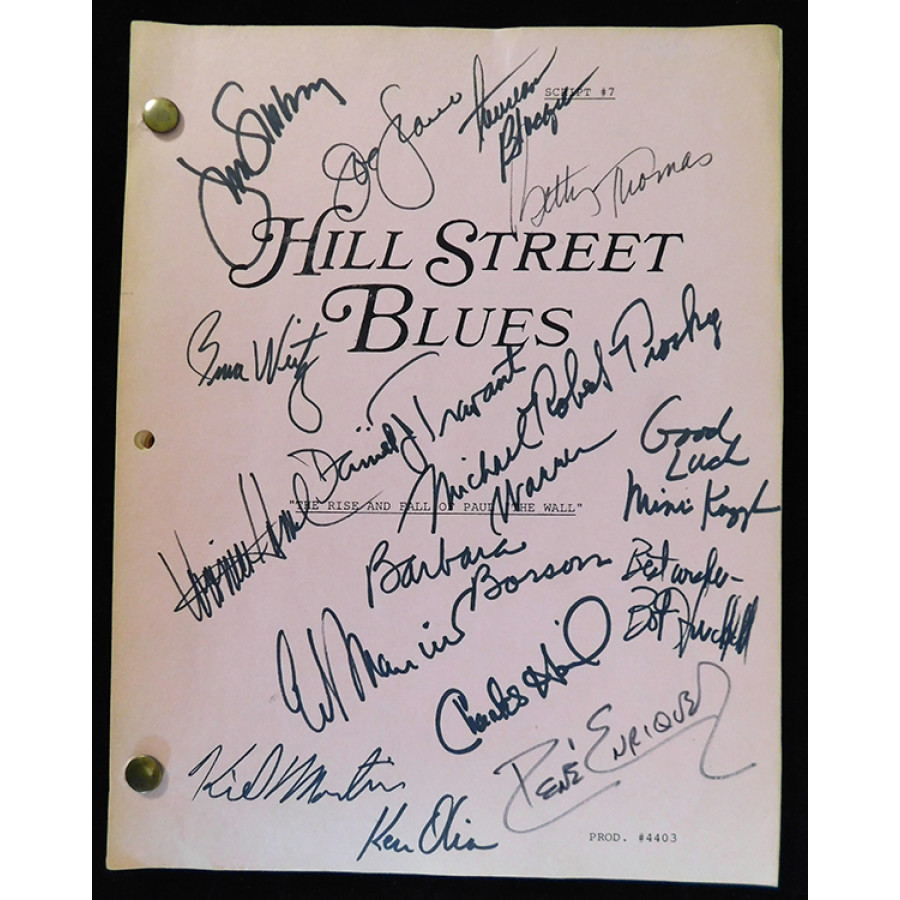 SCRIPT #7
Joe Spano
Taurean
Blacque
Betty Thomas
HILL STREET
BLUES
Bruce Weitz
Robert Prosky
Daniel J Travanti
Michael
Warren
Good
Luck
Mimi Kuzyk
"THE RISE AND FALL OF PAUL THE WALL"
Barbara
Bosson
Best wishes-
Ed Marinaro
Charles Haid
René Enriquez
Kiel Martin
Ken Olin
PROD. #4403